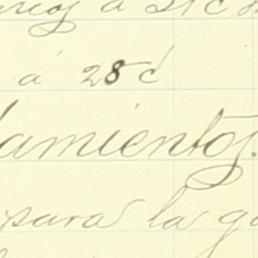 á 21 c
á 28 c
amientos.
para la